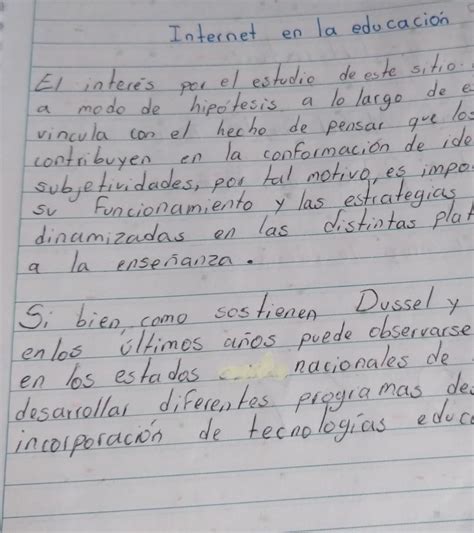 Internet en la educación
El interés por el estudio de este sitio.
a modo de hipótesis a lo largo de e
vincula con el hecho de pensar que los
contribuyen en la conformación de ide
subjetividades, por tal motivo, es impo
su funcionamiento y las estrategias
dinamizadas en las distintas plat
a la enseñanza.
Si bien, como sostienen Dussel y
en los últimos años puede observarse
en los estados nacionales de
desarrollar diferentes programas de
incorporación de tecnologías educ